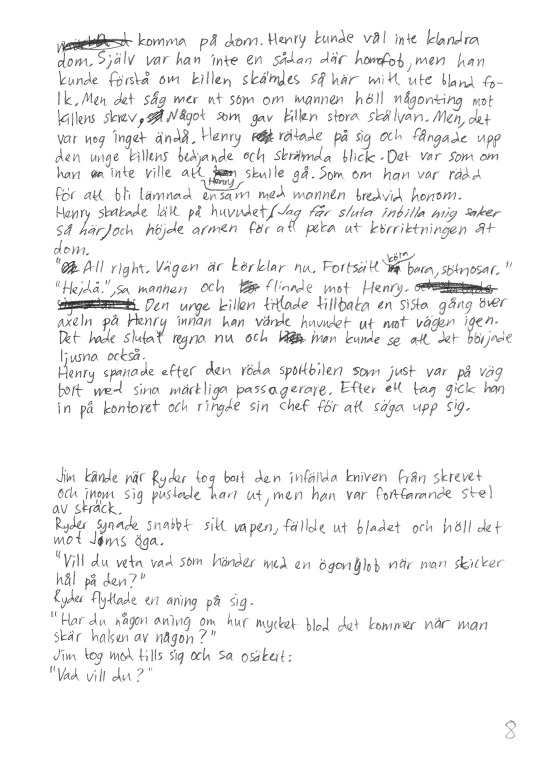 komma på dom. Henry kunde väl inte klandra
dom. Själv var han inte en sådan där homofob, men han
kunde förstå om killen skämdes så här mitt ute bland fo-
lk. Men det såg mer ut som om mannen höll någonting mot
killens skrev. Något som gav killen stora skälvan. Men, det
var nog inget ändå. Henry rätade på sig och fångade upp
den unge killens bedjande och skrämda blick. Det var som om
han inte ville att Henry skulle gå. Som om han var rädd
för att bli lämnad ensam med mannen bredvid honom.
Henry skakade lätt på huvudet, Jag får sluta inbilla mig saker
så här, och höjde armen för att peka ut körriktningen åt
dom.
" All right. Vägen är körklar nu. Fortsätt köra bara, sötnosar."
"Hejdå.", sa mannen och flinade mot Henry.
Den unge killen tittade tillbaka en sista gång över
axeln på Henry innan han vände huvudet ut mot vägen igen.
Det hade slutat regna nu och man kunde se att det började
ljusna också.
Henry spanade efter den röda sportbilen som just var på väg
bort med sina märkliga passagerare. Efter ett tag gick han
in på kontoret och ringde sin chef för att säga upp sig.
Jim kände när Ryder tog bort den infällda kniven från skrevet
och inom sig pustade han ut, men han var fortfarande stel
av skräck.
Ryder synade snabbt sitt vapen, fällde ut bladet och höll det
mot Jims öga.
"Vill du veta vad som händer med en ögonglob när man sticker
hål på den?"
Ryder flyttade en aning på sig.
"Har du någon aning om hur mycket blod det kommer när man
skär halsen av någon?"
Jim tog mod till sig och sa osäkert:
"Vad vill du?"
8